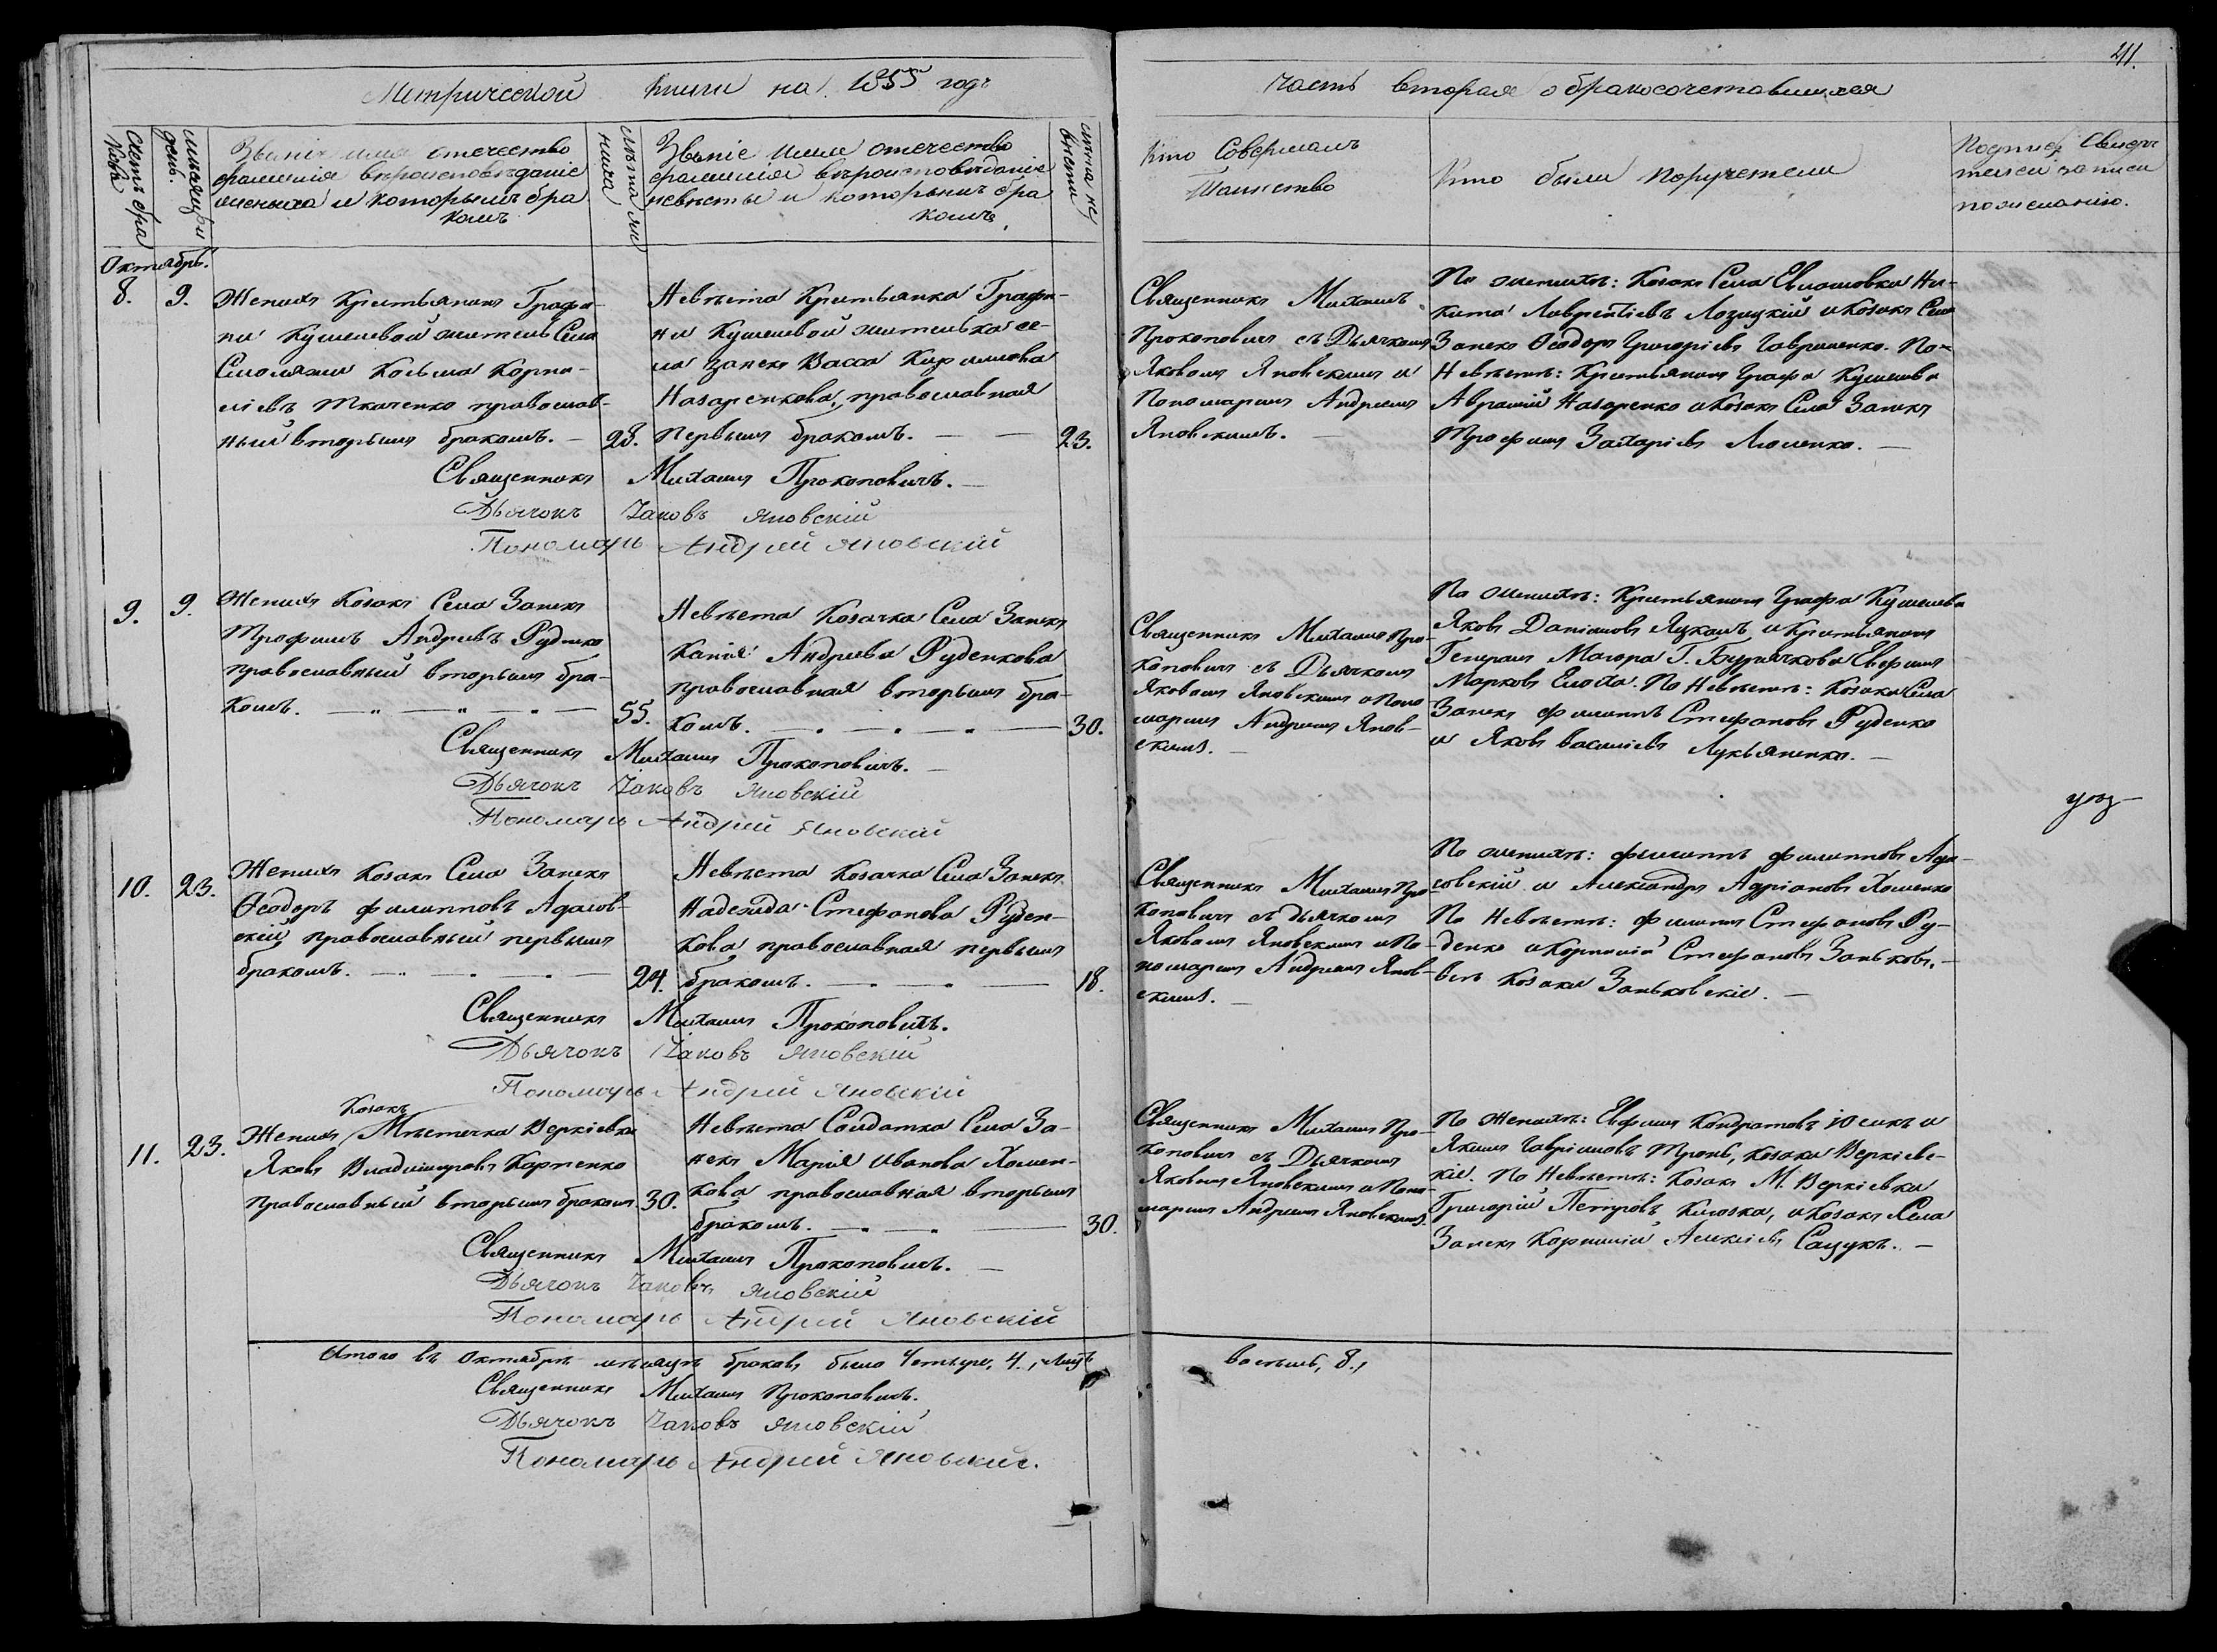 Метрической книги на 1855 годъ
часть вторая о бракосочетавшихся
211.
Счетъ браковъ
мѣсяцъ и день.
Званіе имя отечество
фамилія вѣроисповѣданіе
жениха и которымъ бра
комъ
лѣта жениха
Званіе имя отечество
фамилія вѣроисповѣданіе
невѣсты и которымъ бра
комъ.
лѣта невѣсты
Кто Совершалъ
Таинство
Кто были поручители
Подпись Свидѣ
телей записи
по желанію.
Октябрь.
8.
9.
Женихъ Крестьянинъ Графи-
ни Кушелевой житель Села
Смоляжи Косьма Корни-
ліевъ Ткаченко православ-
ный вторымъ бракомъ. — 28.
Невѣста Крестьянка Графи-
ни Кушелевой жителька се-
ла Занекъ Васса
Назаренкова, православная
первымъ бракомъ. — — 23.
Священникъ Михаилъ
Прокоповичъ съ Дьячкомъ
Яковомъ Яновскимъ и
Пономаремъ Андреемъ
Яновскимъ. —
По женихѣ: Козакъ Села Евлашовки Ни-
кита Лаврентіевъ Лозицкій и Козакъ Села
Занекъ Ѳеодоръ Григоріевъ Гавриленко. По
Невѣстѣ: Крестьянинъ Графа Кушелева
Аврамій Назаренко и Козакъ Села Занекъ
Трофимъ Захаріевъ Люленко. —
Священникъ Михаилъ Прокоповичъ. —
Дьячокъ Іаковъ Яновскій
Пономарь Андрей Яновскій
9.
9.
Женихъ Козакъ Села Занекъ
Трофимъ Андреевъ Руденко
православный вторымъ бра-
комъ. — " — " — " — 55.
Невѣста Козачка Села Занекъ
Андреева Руденкова
православная вторымъ бра-
комъ. — . — . — . — 30.
Священникъ Михаилъ Про-
коповичъ съ Дьячкомъ
Яковомъ Яновскимъ и Поно
маремъ Андреемъ Янов-
скимъ. —
По женихѣ: Крестьянинъ Графа Кушелева
Яковъ Даніиловъ и Крестьянинъ
Генералъ Маіора Г. Бурячкова Евфимъ
Марковъ Елоха. По Невѣстѣ: Козаки Села
Занекъ Филиппъ Стефановъ Руденко
и Яковъ Василіевъ Лукьяненко. —
Священникъ Михаилъ Прокоповичъ. —
Дьячокъ Іаковъ Яновскій
Пономарь Андрей Яновскій
10.
23.
Женихъ Козакъ Села Занекъ
Ѳеодоръ Филипповъ Адасов-
скій православный первымъ
бракомъ. — . — . — . — 24.
Невѣста Козачка Села Занекъ
Надежда Стефанова Руден-
кова православная первымъ
бракомъ. — . — . — 18.
Священникъ Михаилъ Про
коповичъ съ дьячкомъ
Яковомъ Яновскимъ и По-
номаремъ Андреемъ Янов-
скимъ. —
По женихѣ: Филиппъ Филипповъ Ада-
совскій и Александръ Адріановъ Хоменко
По Невѣстѣ: Филиппъ Стефановъ Ру-
денко и Корнилій Стефановъ Заньковъ,
всѣ Козаки Заньковскіе. —
Священникъ Михаилъ Прокоповичъ.
Дьячокъ Іаковъ Яновскій
Пономарь Андрей Яновскій
11.
23.
Козакъ
Женихъ Мѣстечка Веркіевки
Яковъ Владиміровъ Карпенко
православный вторымъ бракомъ. 30.
Невѣста Солдатка Села За-
некъ Марія Иванова Хомен-
кова православная вторымъ
бракомъ. — . — . — 30.
Священникъ Михаилъ Про-
коповичъ съ Дьячкомъ
Яковомъ Яновскимъ и Поно-
маремъ Андреемъ Яновскимъ.
По Женихѣ: Евфимъ Кондратовъ Юсикъ и
Якимъ Гавріиловъ Тронь, козаки Веркіевс-
кіе. По Невѣстѣ: Козакъ М. Веркіевки
Григорій Петровъ Клюзка, и Козакъ Села
Занекъ Корнилій Алексіевъ Сацукъ. —
Священникъ Михаилъ Прокоповичъ. —
Дьячокъ Іаковъ Яновскій
Пономарь Андрей Яновскій
Итого въ Октябрѣ мѣсяцѣ браковъ было Четыре, 4., лицъ восемь, 8.,
Священникъ Михаилъ Прокоповичъ.
Дьячокъ Іаковъ Яновскій
Пономарь Андрей Яновскій.